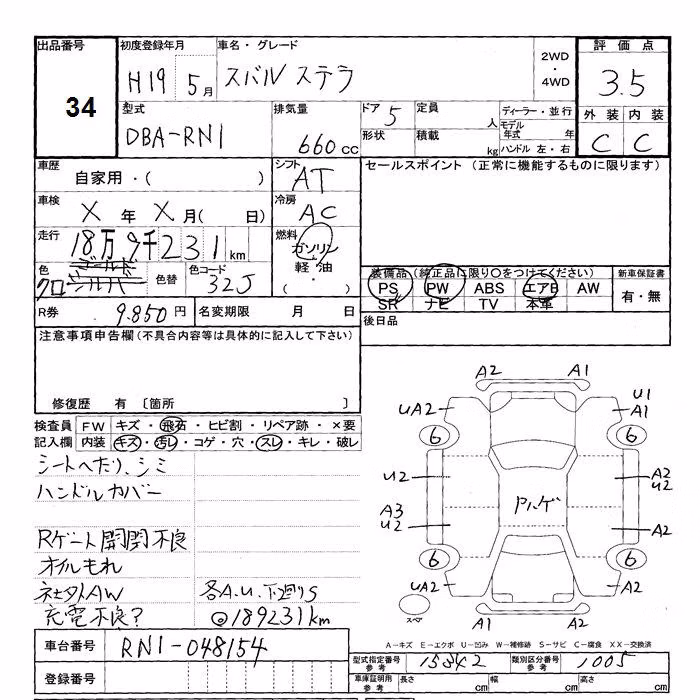 出品番号
34
初度登録年月
H19 5月
車名・グレード
スバル ステラ
2WD
・
4WD
評価点
3.5
外装 内装
C C
型式
DBA-RN1
排気量
660cc
ドア 5
形状
定員 人
積載 kg
ディーラー・並行
モデル年式 年
ハンドル 左・右
車歴
自家用・( )
シフト
AT
車検
X年 X月( 日)
冷房
AC
走行
18万9千231km
燃料
ガソリン
軽油
・
( )
色
クロ
色替
色コード
32J
R券 9.850円
名変期限 月 日
セールスポイント (正常に機能するものに限ります)
装備品(純正品に限り○をつけてください)
PS PW ABS エアB AW
SR ナビ TV 本革
新車保証書
有・無
後日品
注意事項申告欄(不具合内容等は具体的に記入して下さい)
修復歴 有 〔箇所 〕
検査員記入欄
FW キズ・飛石・ヒビ割・リペア跡・×要
内装 キズ・汚レ・コゲ・穴・スレ・キレ・破レ
シートへたり、シミ
ハンドルカバー
Rゲート開閉不良
オイルもれ
社外AW
充電不良?
各A.U.下廻りS
◎189231km
A2 A1
UA2
U1
A1
6 6
U2
A2
U2
A3
U2
A2
6 6
UA2 A2
A1 A2
スペア
A-キズ E-エクボ U-凹み W-補修跡 S-サビ C-腐食 XX-交換済
車台番号
RN1-048154
登録番号
型式指定番号 参考 15342
類別区分番号 参考 1005
車庫証明用 参考
長さ cm 幅 cm 高さ cm